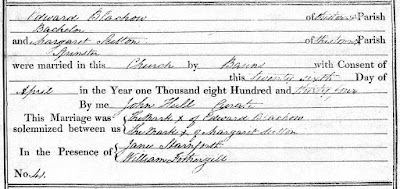 Edward Blackow of this Parish
Bachelor
and Margaret Sutton of this Parish
Spinster
were married in this Church by Banns with Consent of
this twenty sixth Day of
April in the Year One thousand eight Hundred and thirty four
By me John Hull Curate
This Marriage was solemnized between us
The Mark x of Edward Blackow
The Mark x of Margaret Sutton
In the Presence of
Jane
William Fothergill
No.